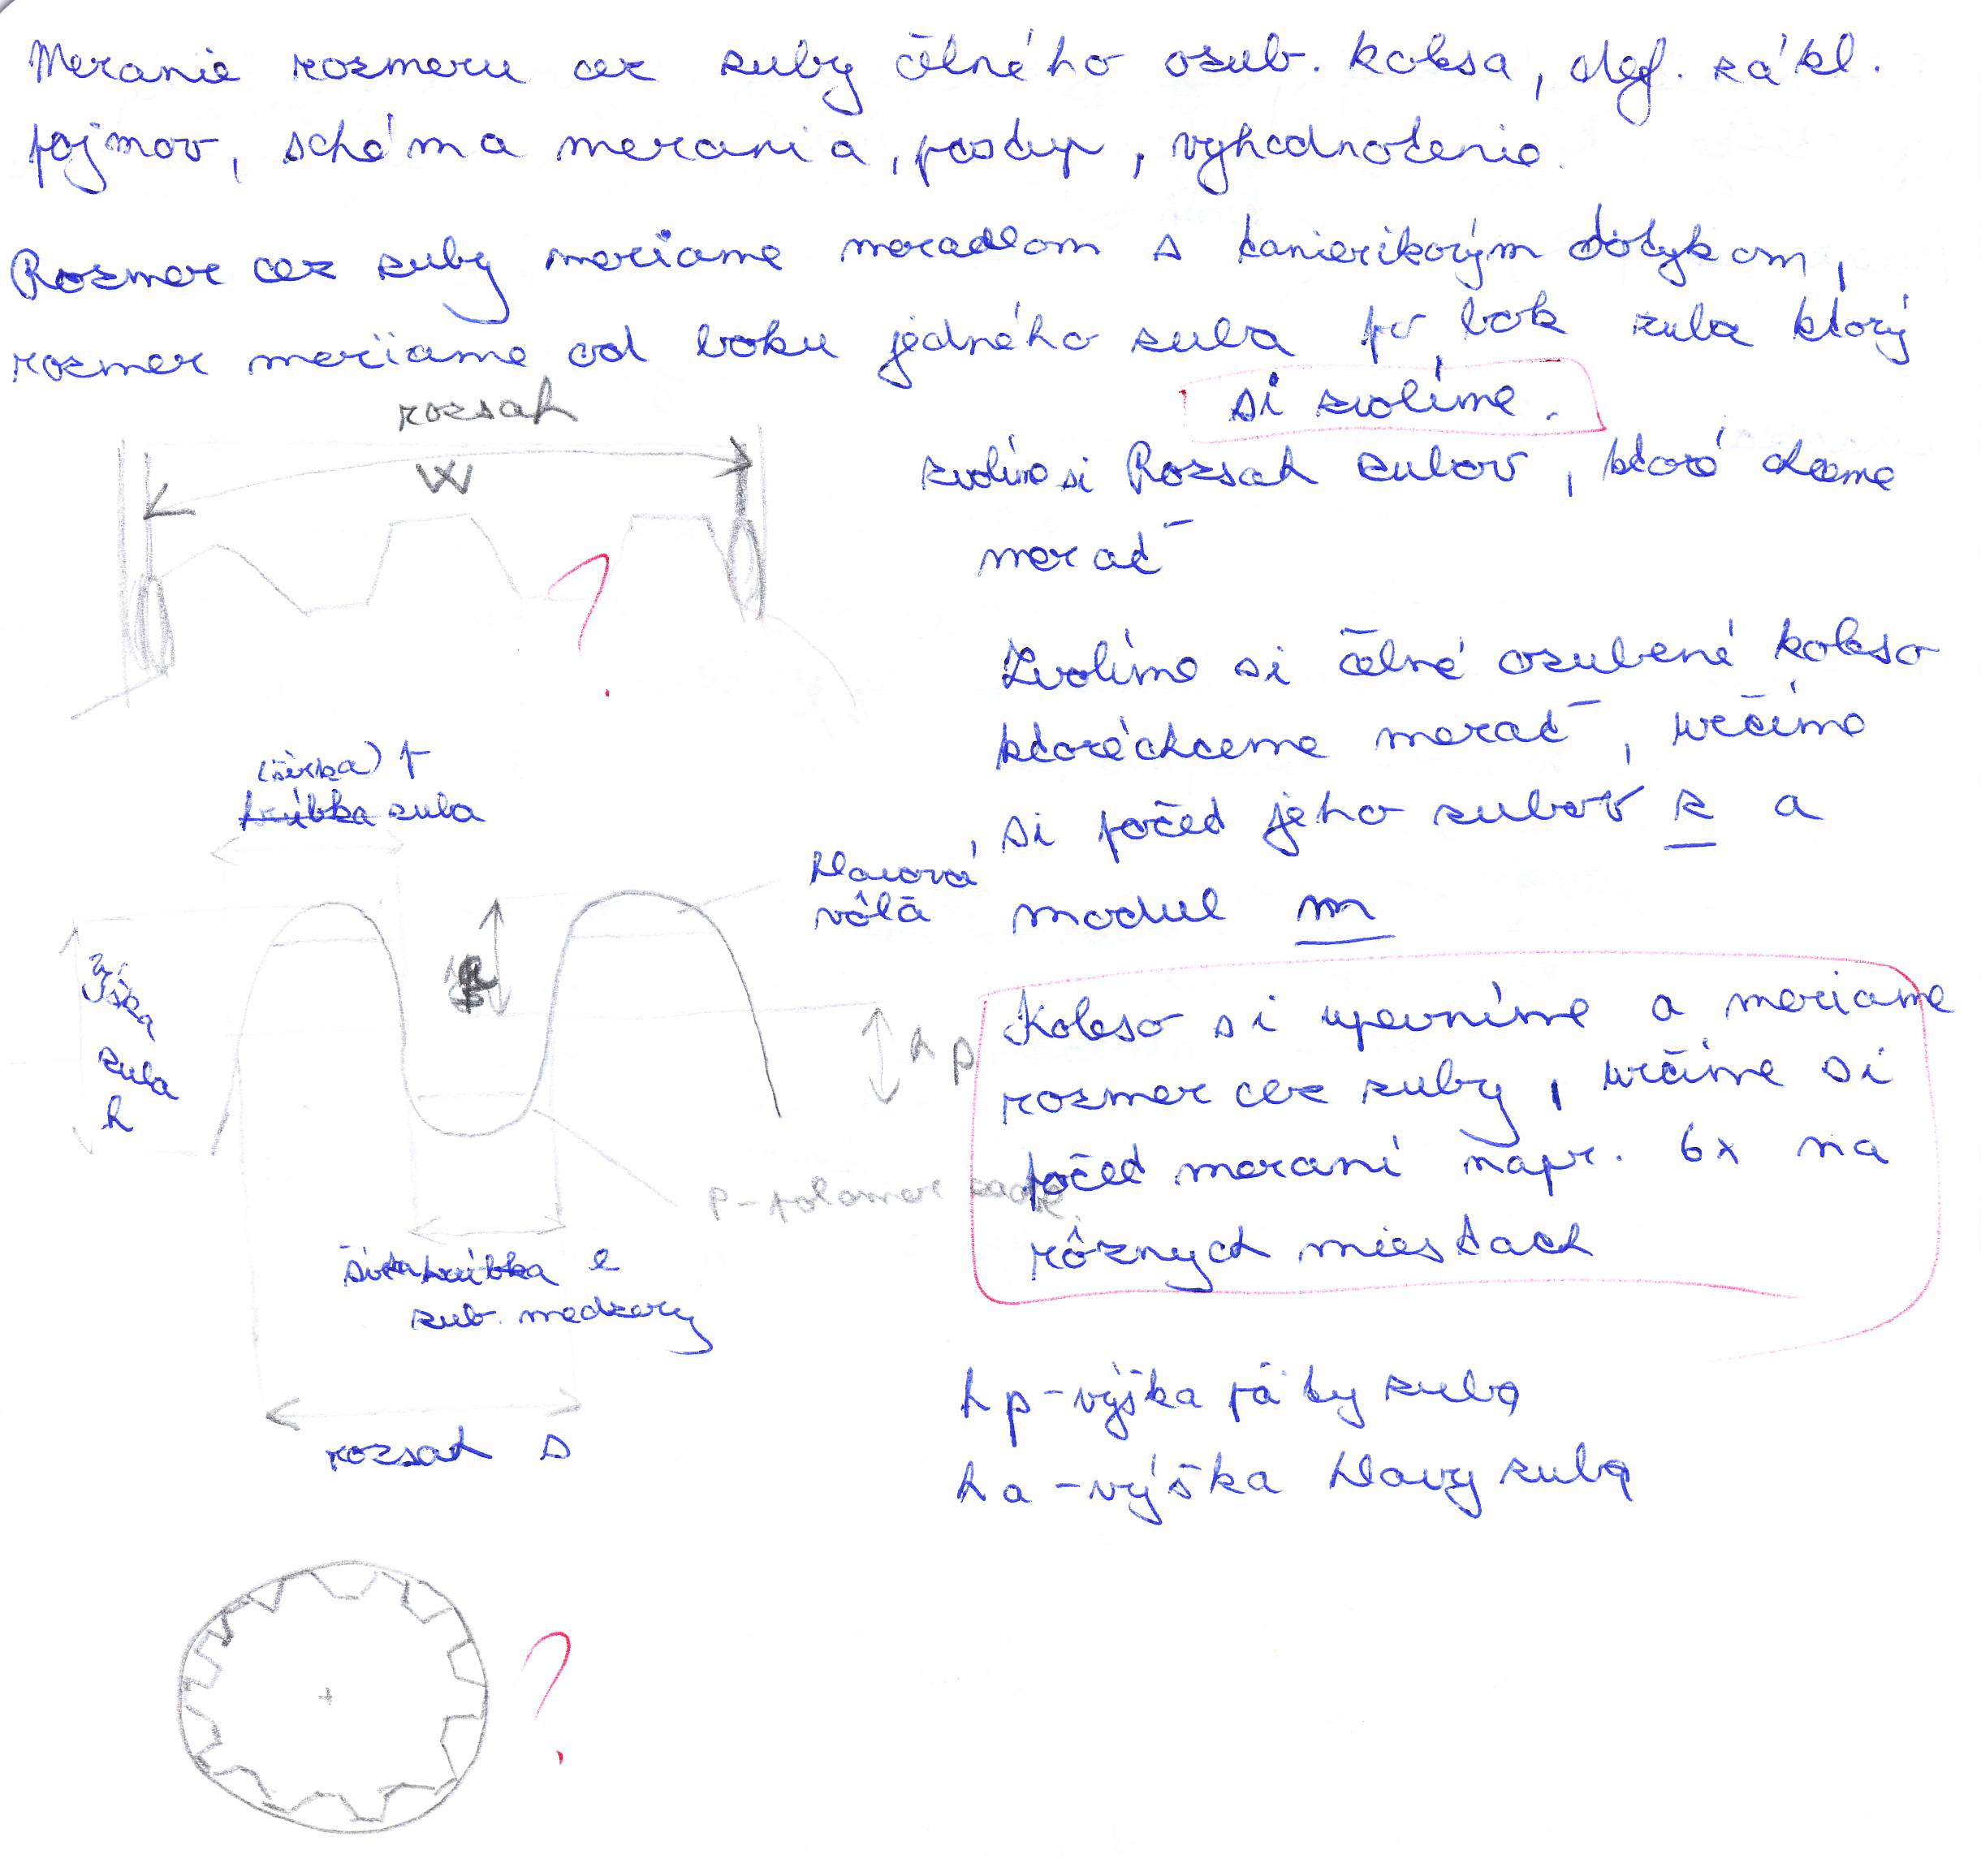 Meranie rozmeru cez zuby čelného ozub. kolesa, def. zákl.
pojmov, schéma merania, postup, vyhodnotenie.
Rozmer cez zuby meriame meradlom s tanierikovým dotykom,
rozmer meriame od boku jedného zuba po bok zuba ktorý
si zvolíme.
rozsah
W
zvolíme si Rozsah zubov, ktoré chceme
merať
Zvolíme si čelné ozubené koleso
ktoré chceme merať, určíme
si počet jeho zubov z a
modul m
(šírka) t
hrúbka zuba
hlavová
vôľa
výška
zuba
h
h p
Koleso si upevníme a meriame
rozmer cez zuby, určíme si
počet meraní napr. 6x na
rôznych miestach
p - polomer
šírka hrúbka e
zub. medzery
rozsah s
h p - výška päty zuba
h a - výška hlavy zuba
?
?